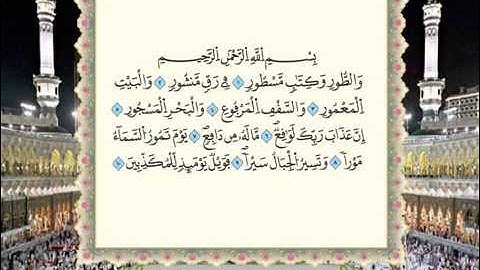 بِسْمِ اللَّهِ الرَّحْمَٰنِ الرَّحِيمِ
وَالطُّورِ وَكِتَابٍ مَسْطُورٍ فِي رَقٍّ مَنْشُورٍ ٣ وَالْبَيْتِ
الْمَعْمُورِ ٤ وَالسَّقْفِ الْمَرْفُوعِ ٥ وَالْبَحْرِ الْمَسْجُورِ ٦
إِنَّ عَذَابَ رَبِّكَ لَوَاقِعٌ ٧ مَالَهُ مِنْ دَافِعٍ ٨ يَوْمَ تَمُورُ السَّمَاءُ
مَوْرًا ٩ وَتَسِيرُ الْجِبَالُ سَيْرًا ١٠ فَوَيْلٌ يَوْمَئِذٍ لِلْمُكَذِّبِينَ